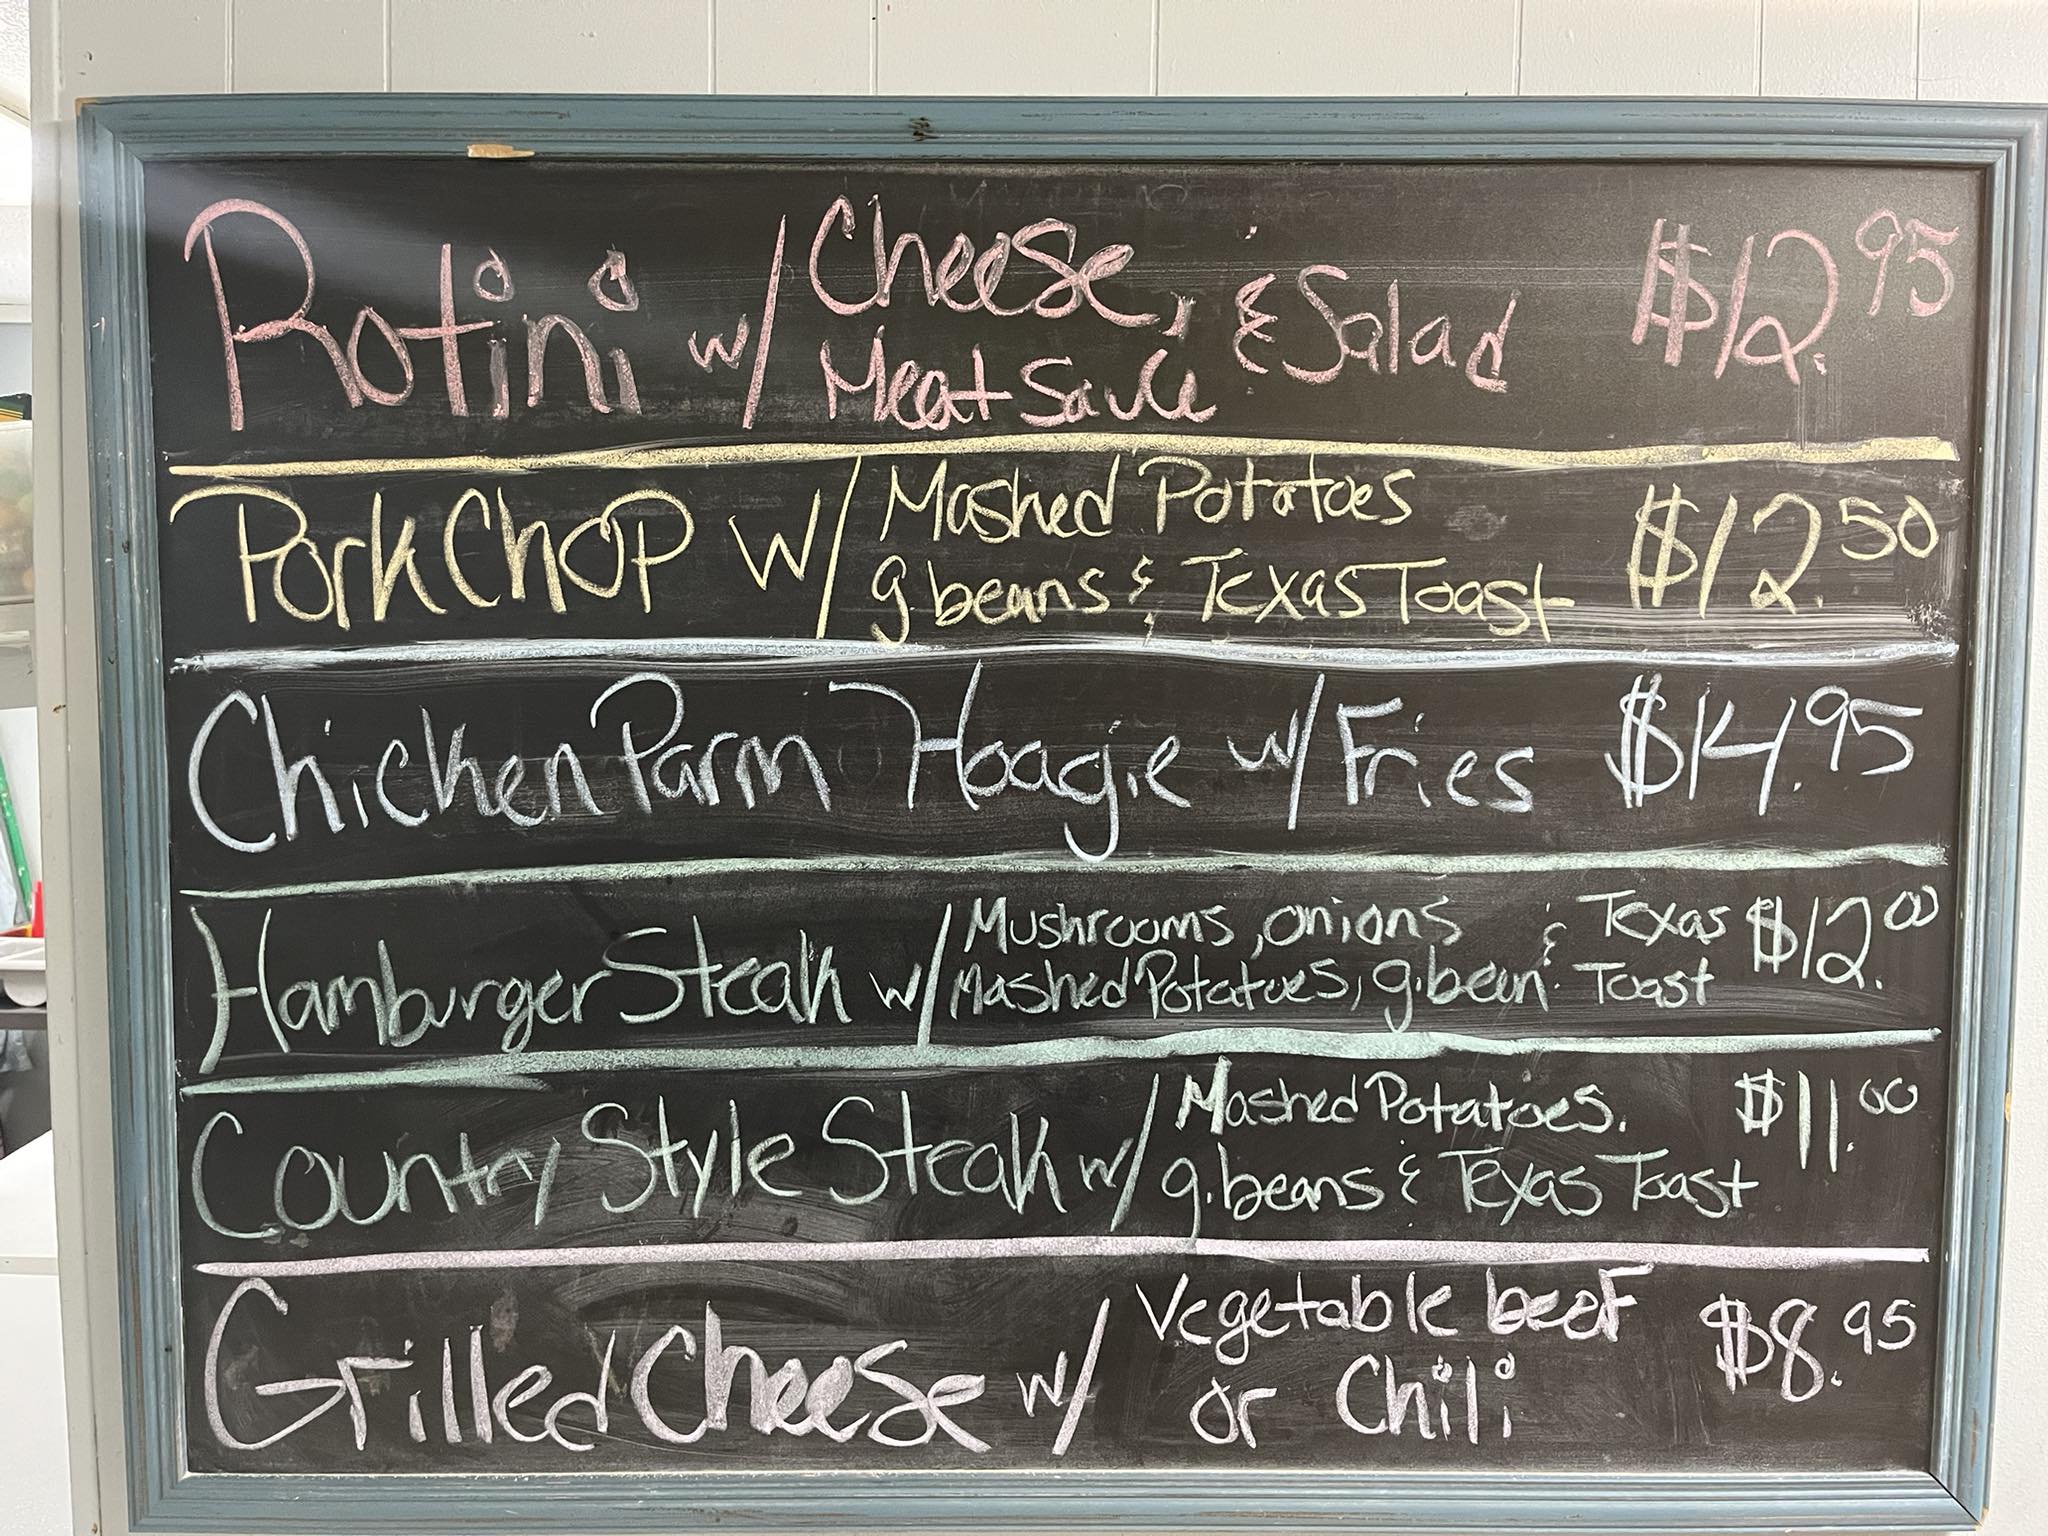 Rotini w/ Cheese, & Salad $12.95
Meat Sauce
Pork Chop w/ Mashed Potatoes $12.50
g.beans & Texas Toast
Chicken Parm Hoagie w/ Fries $14.95
Hamburger Steak w/ Mushrooms, onions & Texas $12.00
Mashed Potatoes, g.bean Toast
Country Style Steak w/ Mashed Potatoes. $11.00
g.beans & Texas Toast
Grilled Cheese w/ Vegetable beef $8.95
or Chili